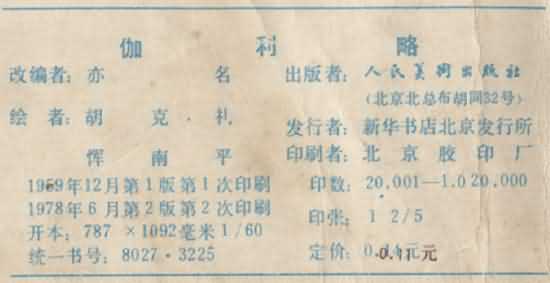 伽利略
改编者：亦名
绘者：胡克礼
恽南平
1959年12月第1版第1次印刷
1978年6月第2版第2次印刷
开本：787×1092毫米1/60
统一书号：8027·3225
出版者：人民美术出版社
（北京北总布胡同32号）
发行者：新华书店北京发行所
印刷者：北京胶印厂
印数：20,001—1,020,000
印张：1 2/5
定价：0.11元